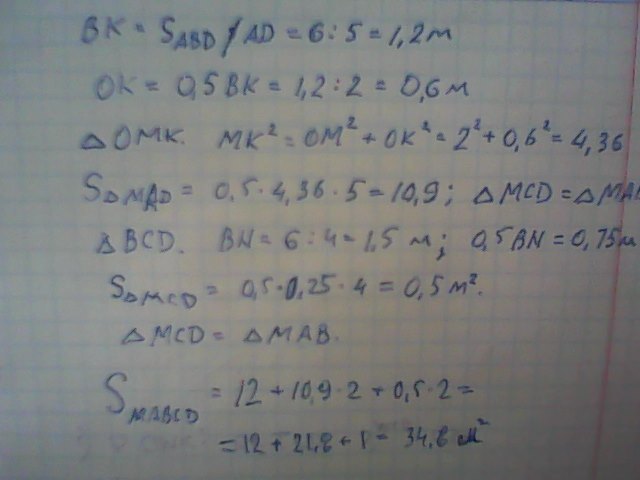 BK = S_ABD / AD = 6 : 5 = 1,2 м
OK = 0,5 BK = 1,2 : 2 = 0,6 м
△OMK. MK² = OM² + OK² = 2² + 0,6² = 4,36
S△MAD = 0,5 · 4,36 · 5 = 10,9; △MCD = △MAB
△BCD. BN = 6 : 4 = 1,5 м; 0,5 BN = 0,75 м
S△MCD = 0,5 · 0,25 · 4 = 0,5 м².
△MCD = △MAB.
S_MABCD = 12 + 10,9 · 2 + 0,5 · 2 =
= 12 + 21,8 + 1 = 34,8 м²